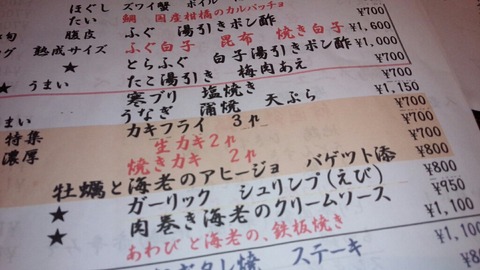 ほぐし ズワイ蟹 ボイル
たい 鯛 国産柑橘のカルパッチョ ¥700
旬 腹皮 ふぐ 湯引きポン酢 ¥1,600
熟成サイズ ふぐ白子 昆布 焼き白子 ¥1,000
★ とらふぐ 白子湯引きポン酢 ¥700
★ うまい たこ湯引き 梅肉あえ ¥700
寒ブリ 塩焼き ¥1,150
まい うなぎ 蒲焼 天ぷら ¥700
特集 カキフライ 3ヶ ¥700
濃厚 生カキ 2ヶ ¥700
焼きカキ 2ヶ ¥800
牡蠣と海老のアヒージョ バゲット添 ¥800
★ ガーリック シュリンプ(えび) ¥950
★ 肉巻き海老のクリームソース ¥1,100
あわびと海老の、鉄板焼き ¥1,100
ステーキ